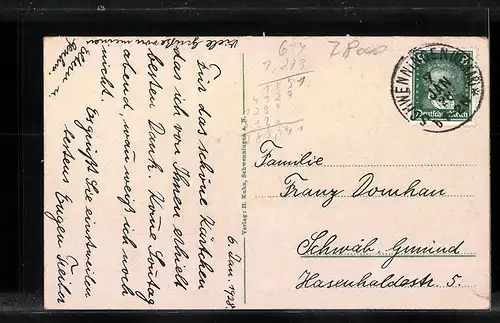 Viele Grüße von meinen
Eltern u.
Für das schöne Kärtchen
das ich von Ihnen erhielt
besten Dank. Komme Sontag
abend, wann weiß ich noch
nicht.
Ergrüßt Sie einstweilen
bestens Eugen
6. Jan. 1928.
Verlag: H. Kuhn, Schwenningen a. N.
SCHWENNINGEN (NECKAR)
Deutsches Reich
Familie
Franz Domhan
Schwäb. Gmünd
Hasenhaldestr. 5.